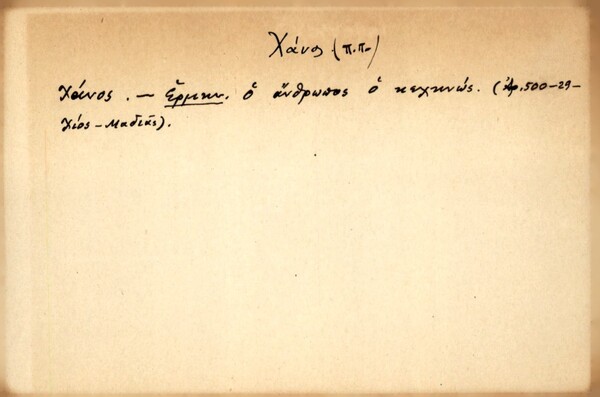 Χάνος (π.π.)
Χάνος. — Ἑρμην. ὁ ἄνθρωπος ὁ κεχηνώς. (Ἀρ. 500-29-
Χίος - Μαδιᾶς).